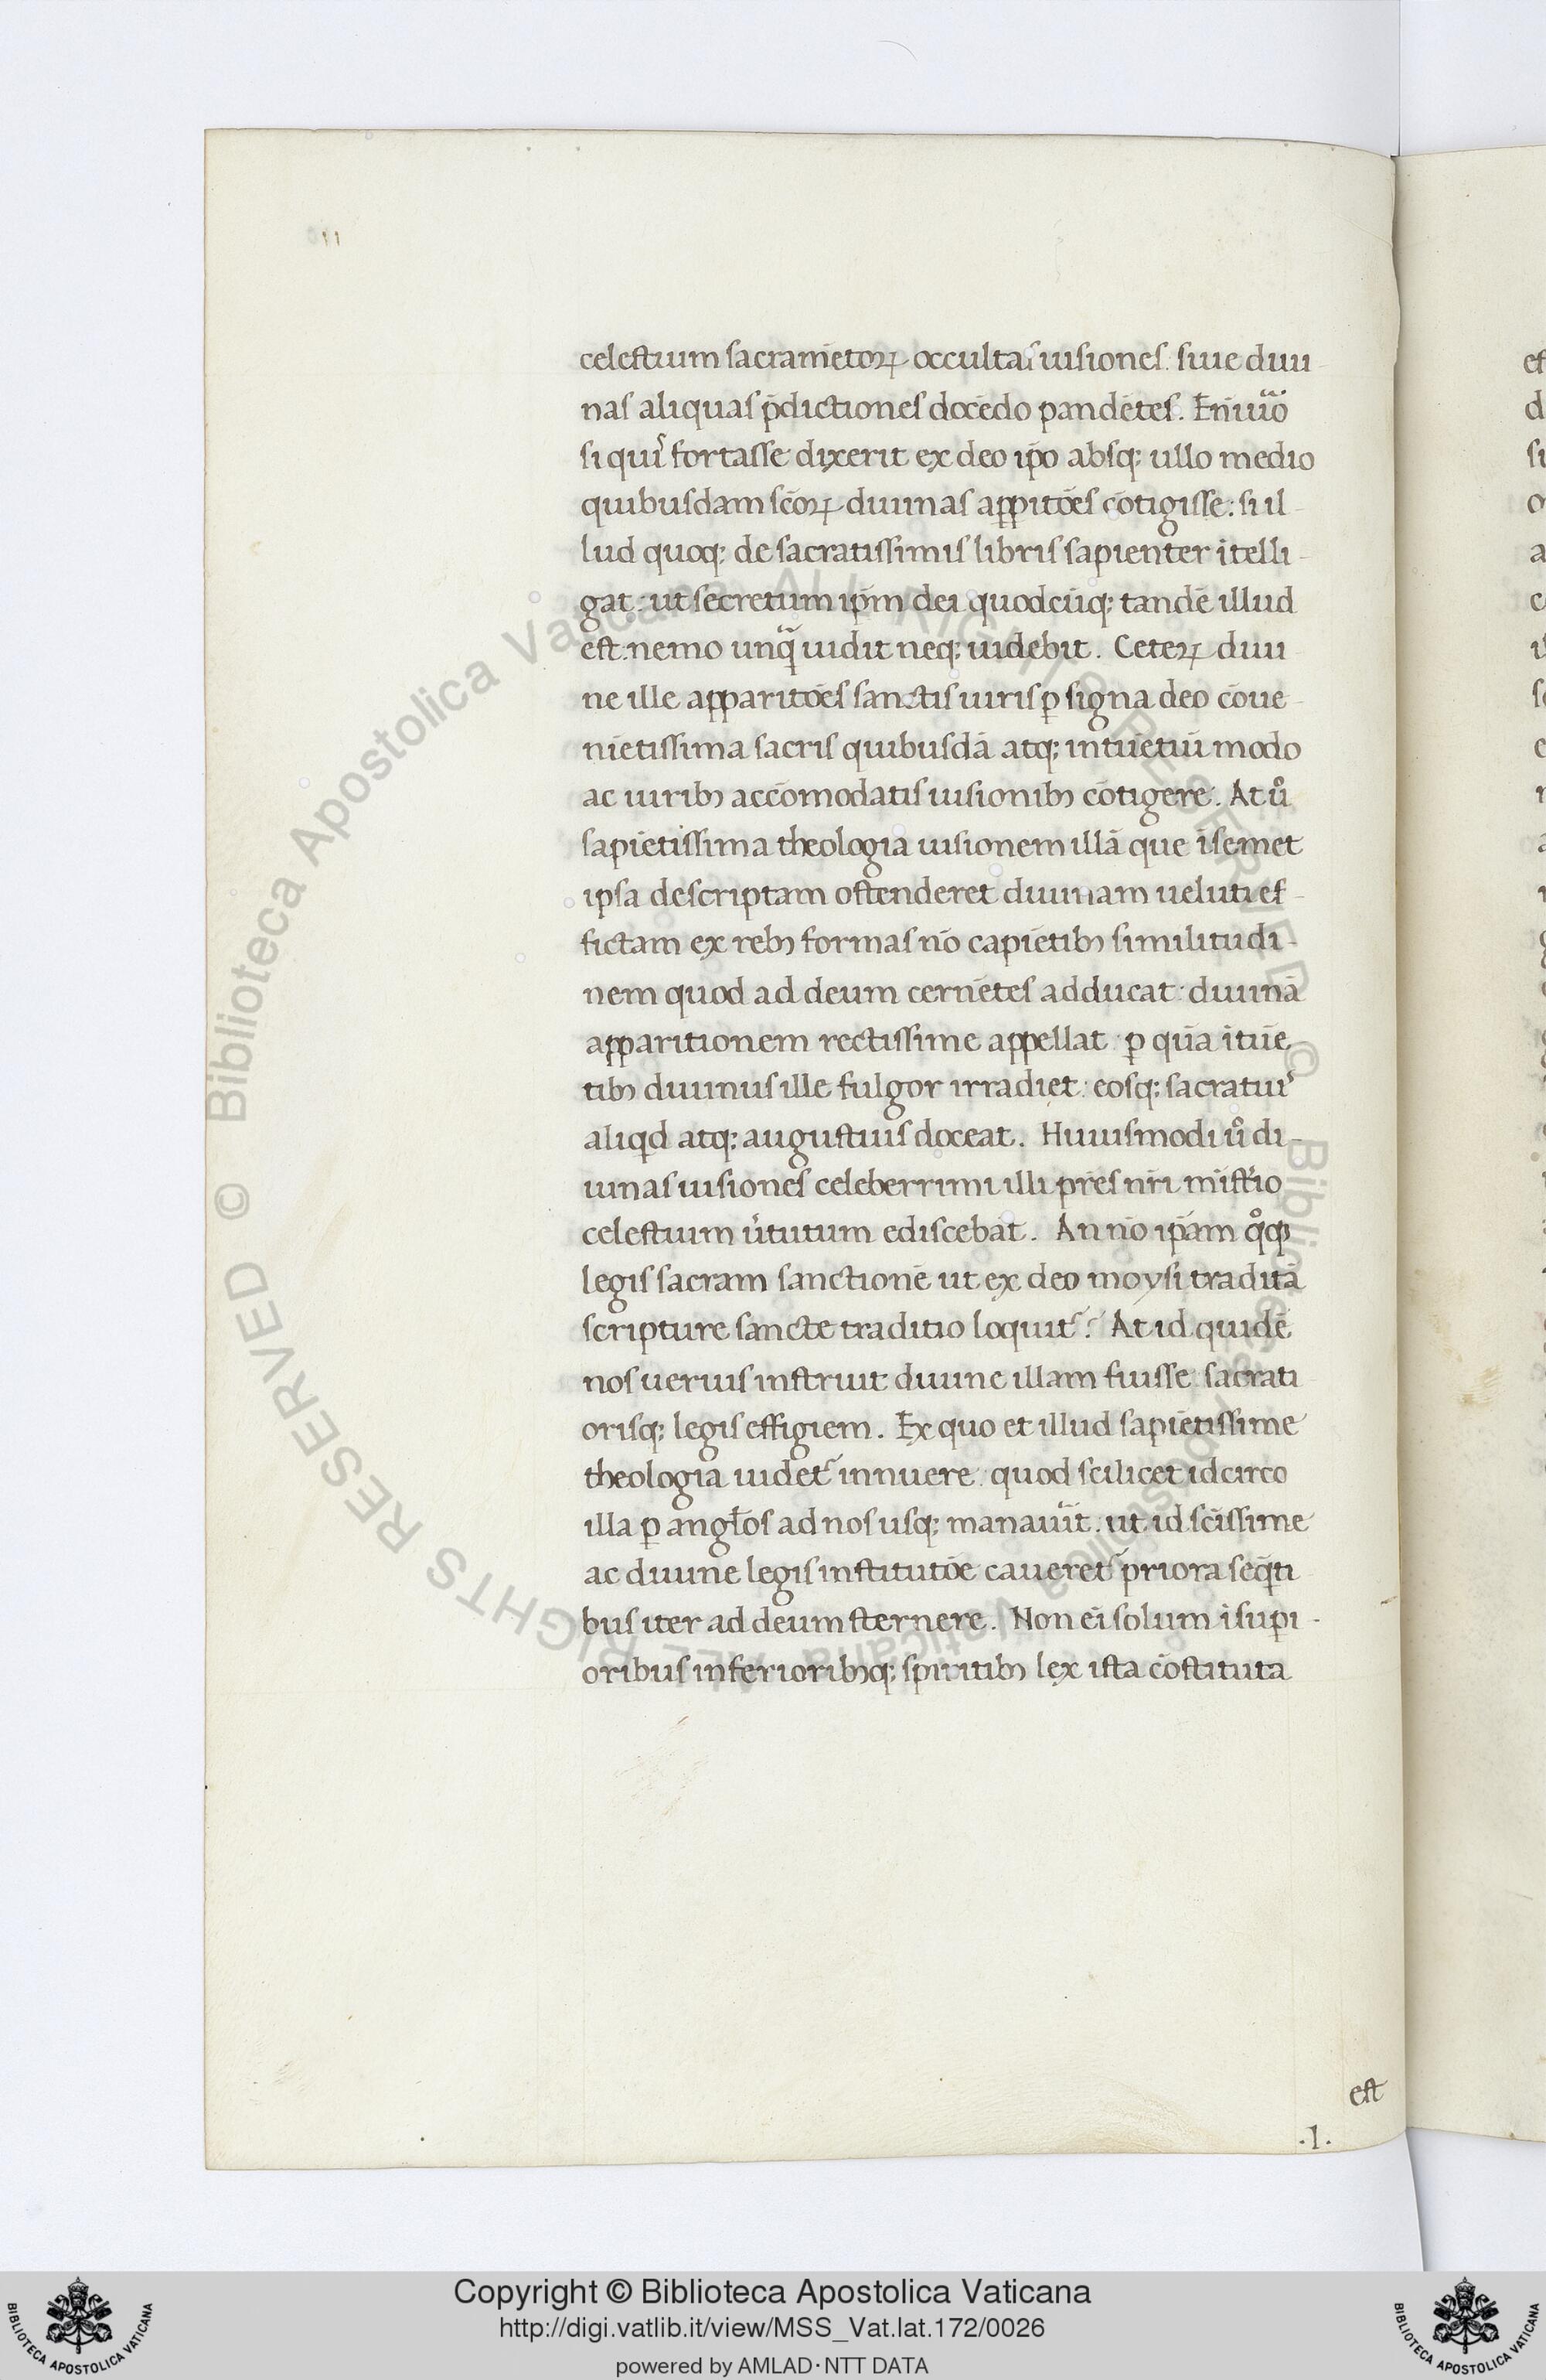 celestium sacramētoꝝ occultas uisiones. siue diui
nas aliquas p̄dictiones docēdo pandētes. Eniuӯo
si quis fortasse dixerit ex deo ip̄o absq; ullo medio
quibusdam sc̄oꝝ diuinas apꝑitōes cōtigisse: si il-
lud quoq; de sacratissimis libris sapienter ītelli-
gat: ut secretum ip̄m dei quodcūq; tandē illud
est: nemo unq̄ uidit neq; uidebit. Ceteꝝ diui
ne ille apparitōes sanctis uiris ꝑ signa deo cōue-
niētissima sacris quibusdā atq; intuētiū modo
ac uiribꝫ accōmodatis uisionibꝫ cōtigere. At uͦ
sapiētissima theologia uisionem illā que ī semet
ipsa descriptam ostenderet diuinam ueluti ef-
fictam ex rebꝫ formas nō capiētibꝫ similitudi-
nem quod ad deum cernētes adducat: diuinā
apparitionem rectissime appellat: ꝑ quā ītuē
tibꝫ diuinus ille fulgor irradiet: eosq; sacratius
aliqd atq; augustius doceat. Huiusmodi uͦ di-
uinas uisiones celeberrimi illi pr̄es nr̄i mīst'io
celestium u'tutum ediscebāt. An nō ip̄am qͦqꝫ
legis sacram sanctionē ut ex deo moysi traditā
scripture sancte traditio loquit᷑? At id quidē
nos uerius instruit diuine illam fuisse sacrati
orisq; legis effigiem. Ex quo et illud sapiētissime
theologia uidet᷑ innuere: quod scilicet idcirco
illa ꝑ angl̄os ad nos usq; manauīt: ut id sc̄issime
ac diuine legis institutōe caueret᷑ priora seq̄ti
bus iter ad deum sternere. Non ei̅ solum ī suꝑi-
oribus inferioribꝫq; spiritibꝫ lex ista cōstituta
est
.1.
11
Copyright © Biblioteca Apostolica Vaticana
http://digi.vatlib.it/view/MSS_Vat.lat.172/0026
powered by AMLAD·NTT DATA